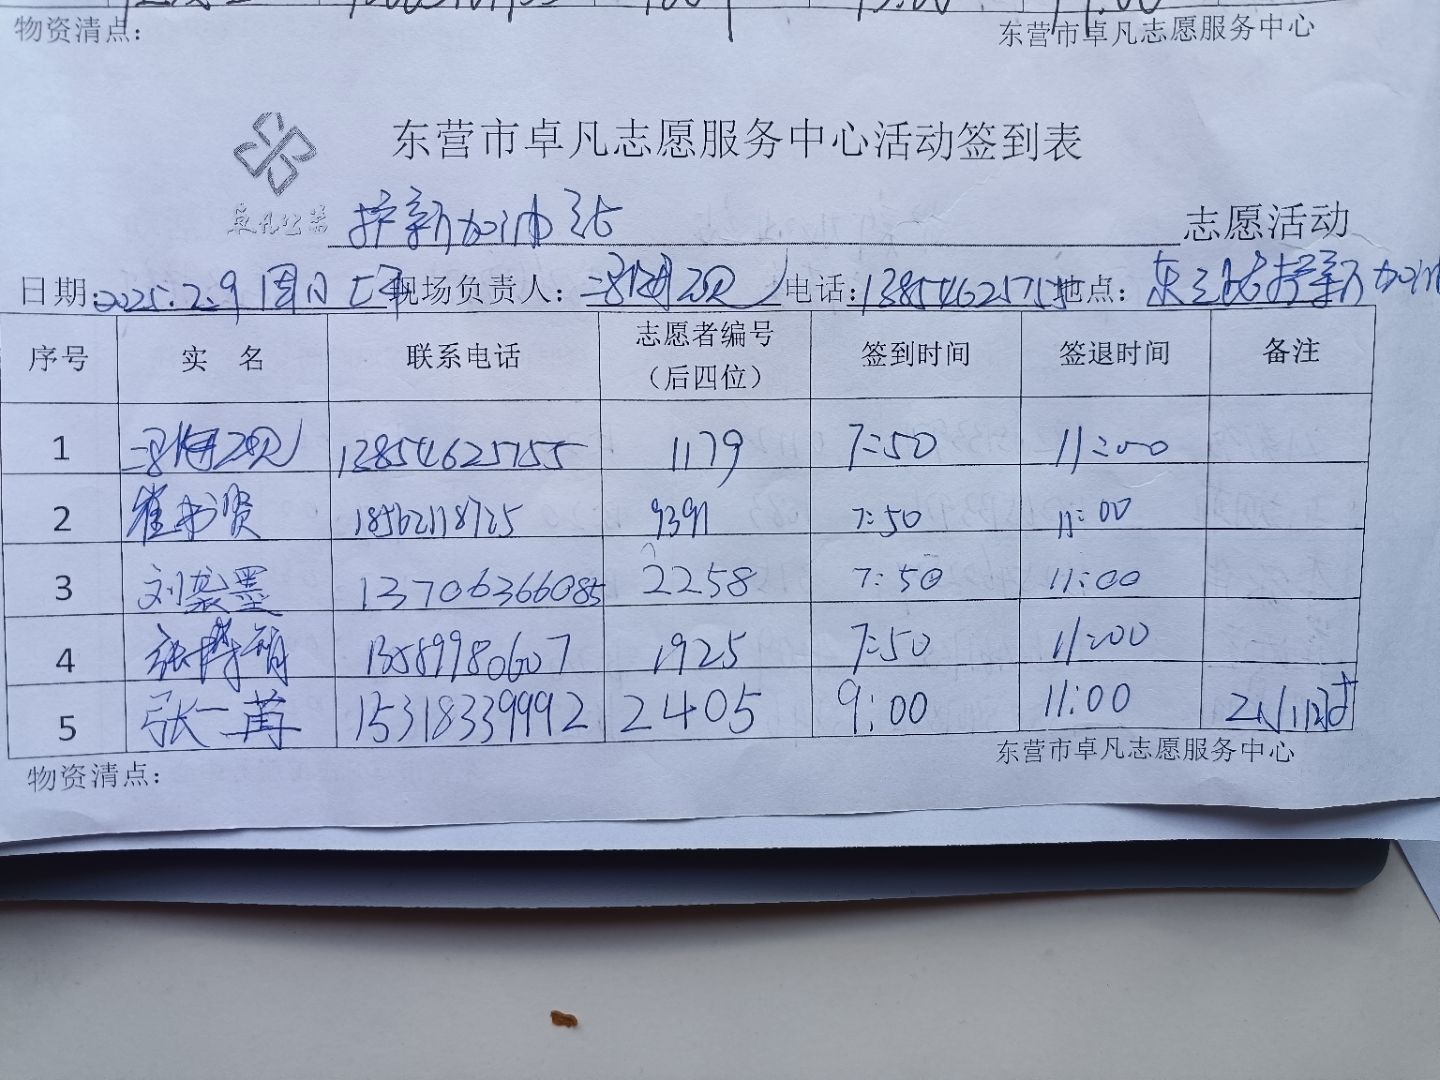 物资清点:
东营市卓凡志愿服务中心
东营市卓凡志愿服务中心活动签到表
卓凡公益
护薪加油站 志愿活动
日期:2025.2.9 周日 上午 现场负责人: 电话:13854625755 地点: 护薪加油
序号 实 名 联系电话 志愿者编号(后四位) 签到时间 签退时间 备注
1 13854625755 1179 7:50 11:00
2 崔书贤 18562118725 9391 7:50 11:00
3 刘袭墨 13706366085 2258 7:50 11:00
4 张 13589980607 1925 7:50 11:00
5 张一苒 15318339992 2405 9:00 11:00 2小时
东营市卓凡志愿服务中心
物资清点: